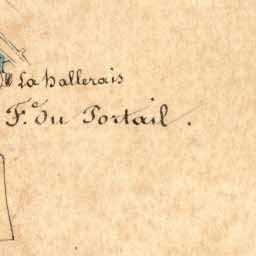 La hallerais
F.e du Portail.